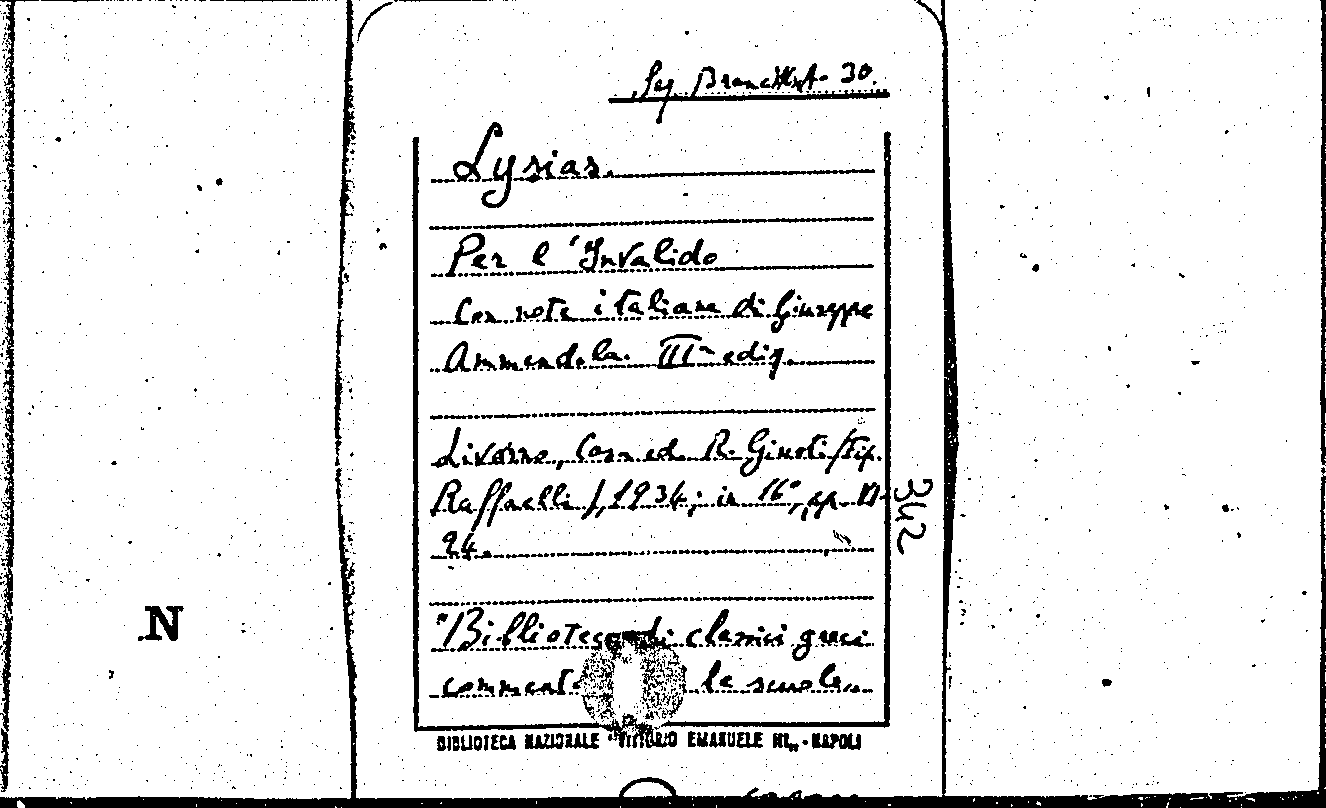 30.
Lysias.
Per l'Invalido
Con note italiane di Giuseppe
Ammendola. IIIª ediz.
Livorno, Casa ed. R. Giusti (tip.
Raffaelli), 1934; in 16°, pp. VI-
24.
342
"Biblioteca di classici greci
comment le scuole„
N
BIBLIOTECA NAZIONALE "VITTORIO EMANUELE III„ - NAPOLI